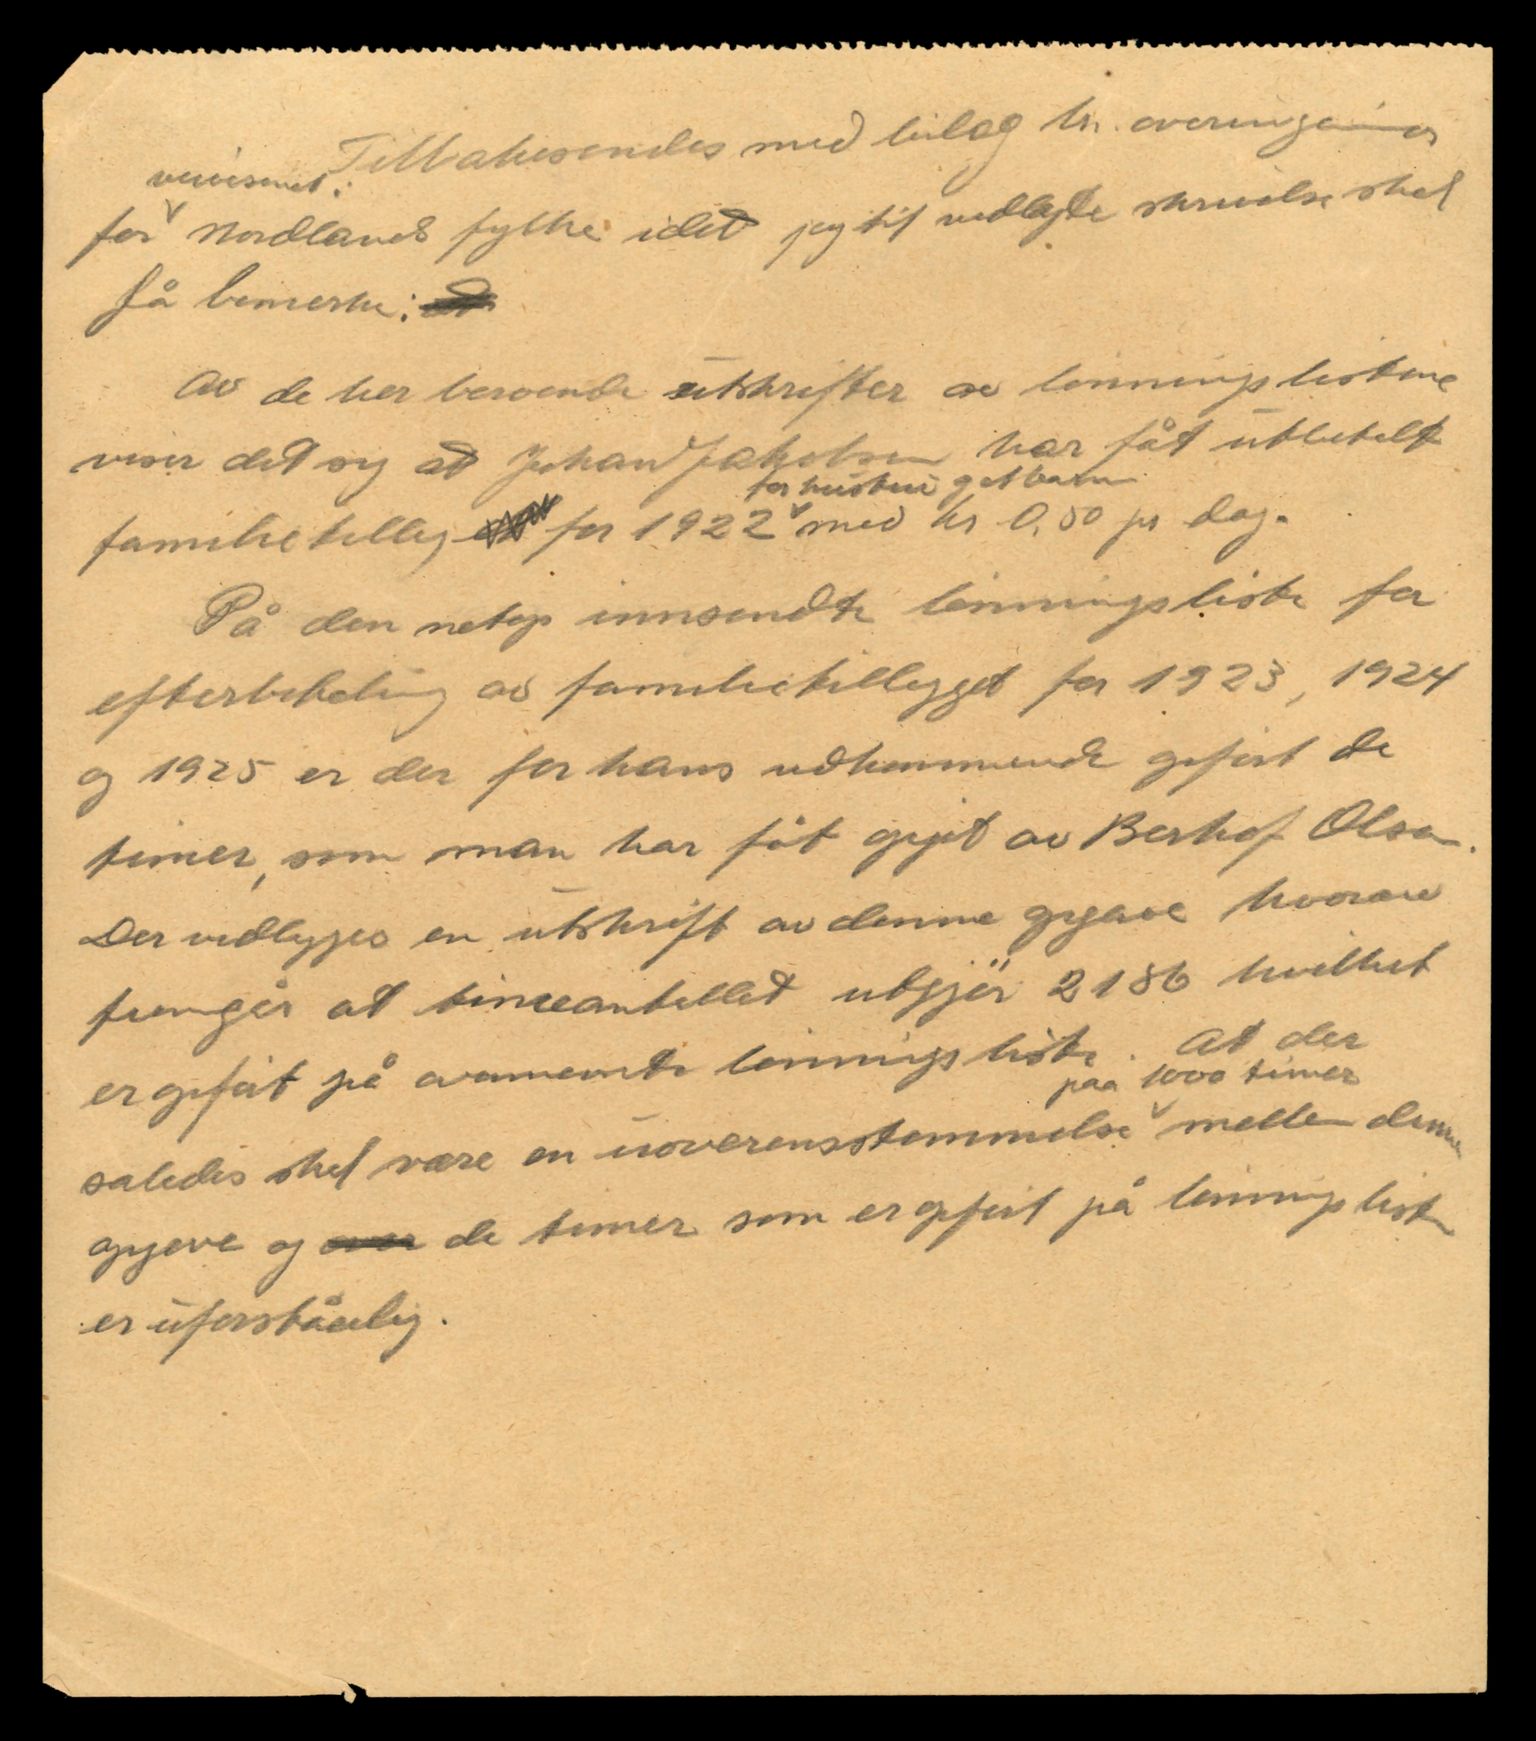 Tilbakesendes med bilag hr. overingeniør
veivesenet i
for Nordlands fylke idet jeg til vedlagte skrivelse skal
få bemerke:
Av de her beroende utskrifter av lønningslistene
viser det sig at Johan Jakobsen har fåt utbetalt
for hustru og et barn
familietillæg for 1922 med kr 0,50 pr dag.
På den netop innsendte lønningsliste for
efterbetaling av familietillegget for 1923, 1924
og 1925 er der for hans vedkommende opført de
timer, som man har fåt opgit av Berhof Olsen.
Der vedlegges en utskrift av denne opgave hvorav
fremgår at timeantallet utgjør 2186 hvilket
er opført på ovennevnte lønningsliste. At der
paa 1000 timer
saledes skal være en uoverensstemmelse mellem denne
opgave og de timer som er opført på lønningslisten
er uforståelig.